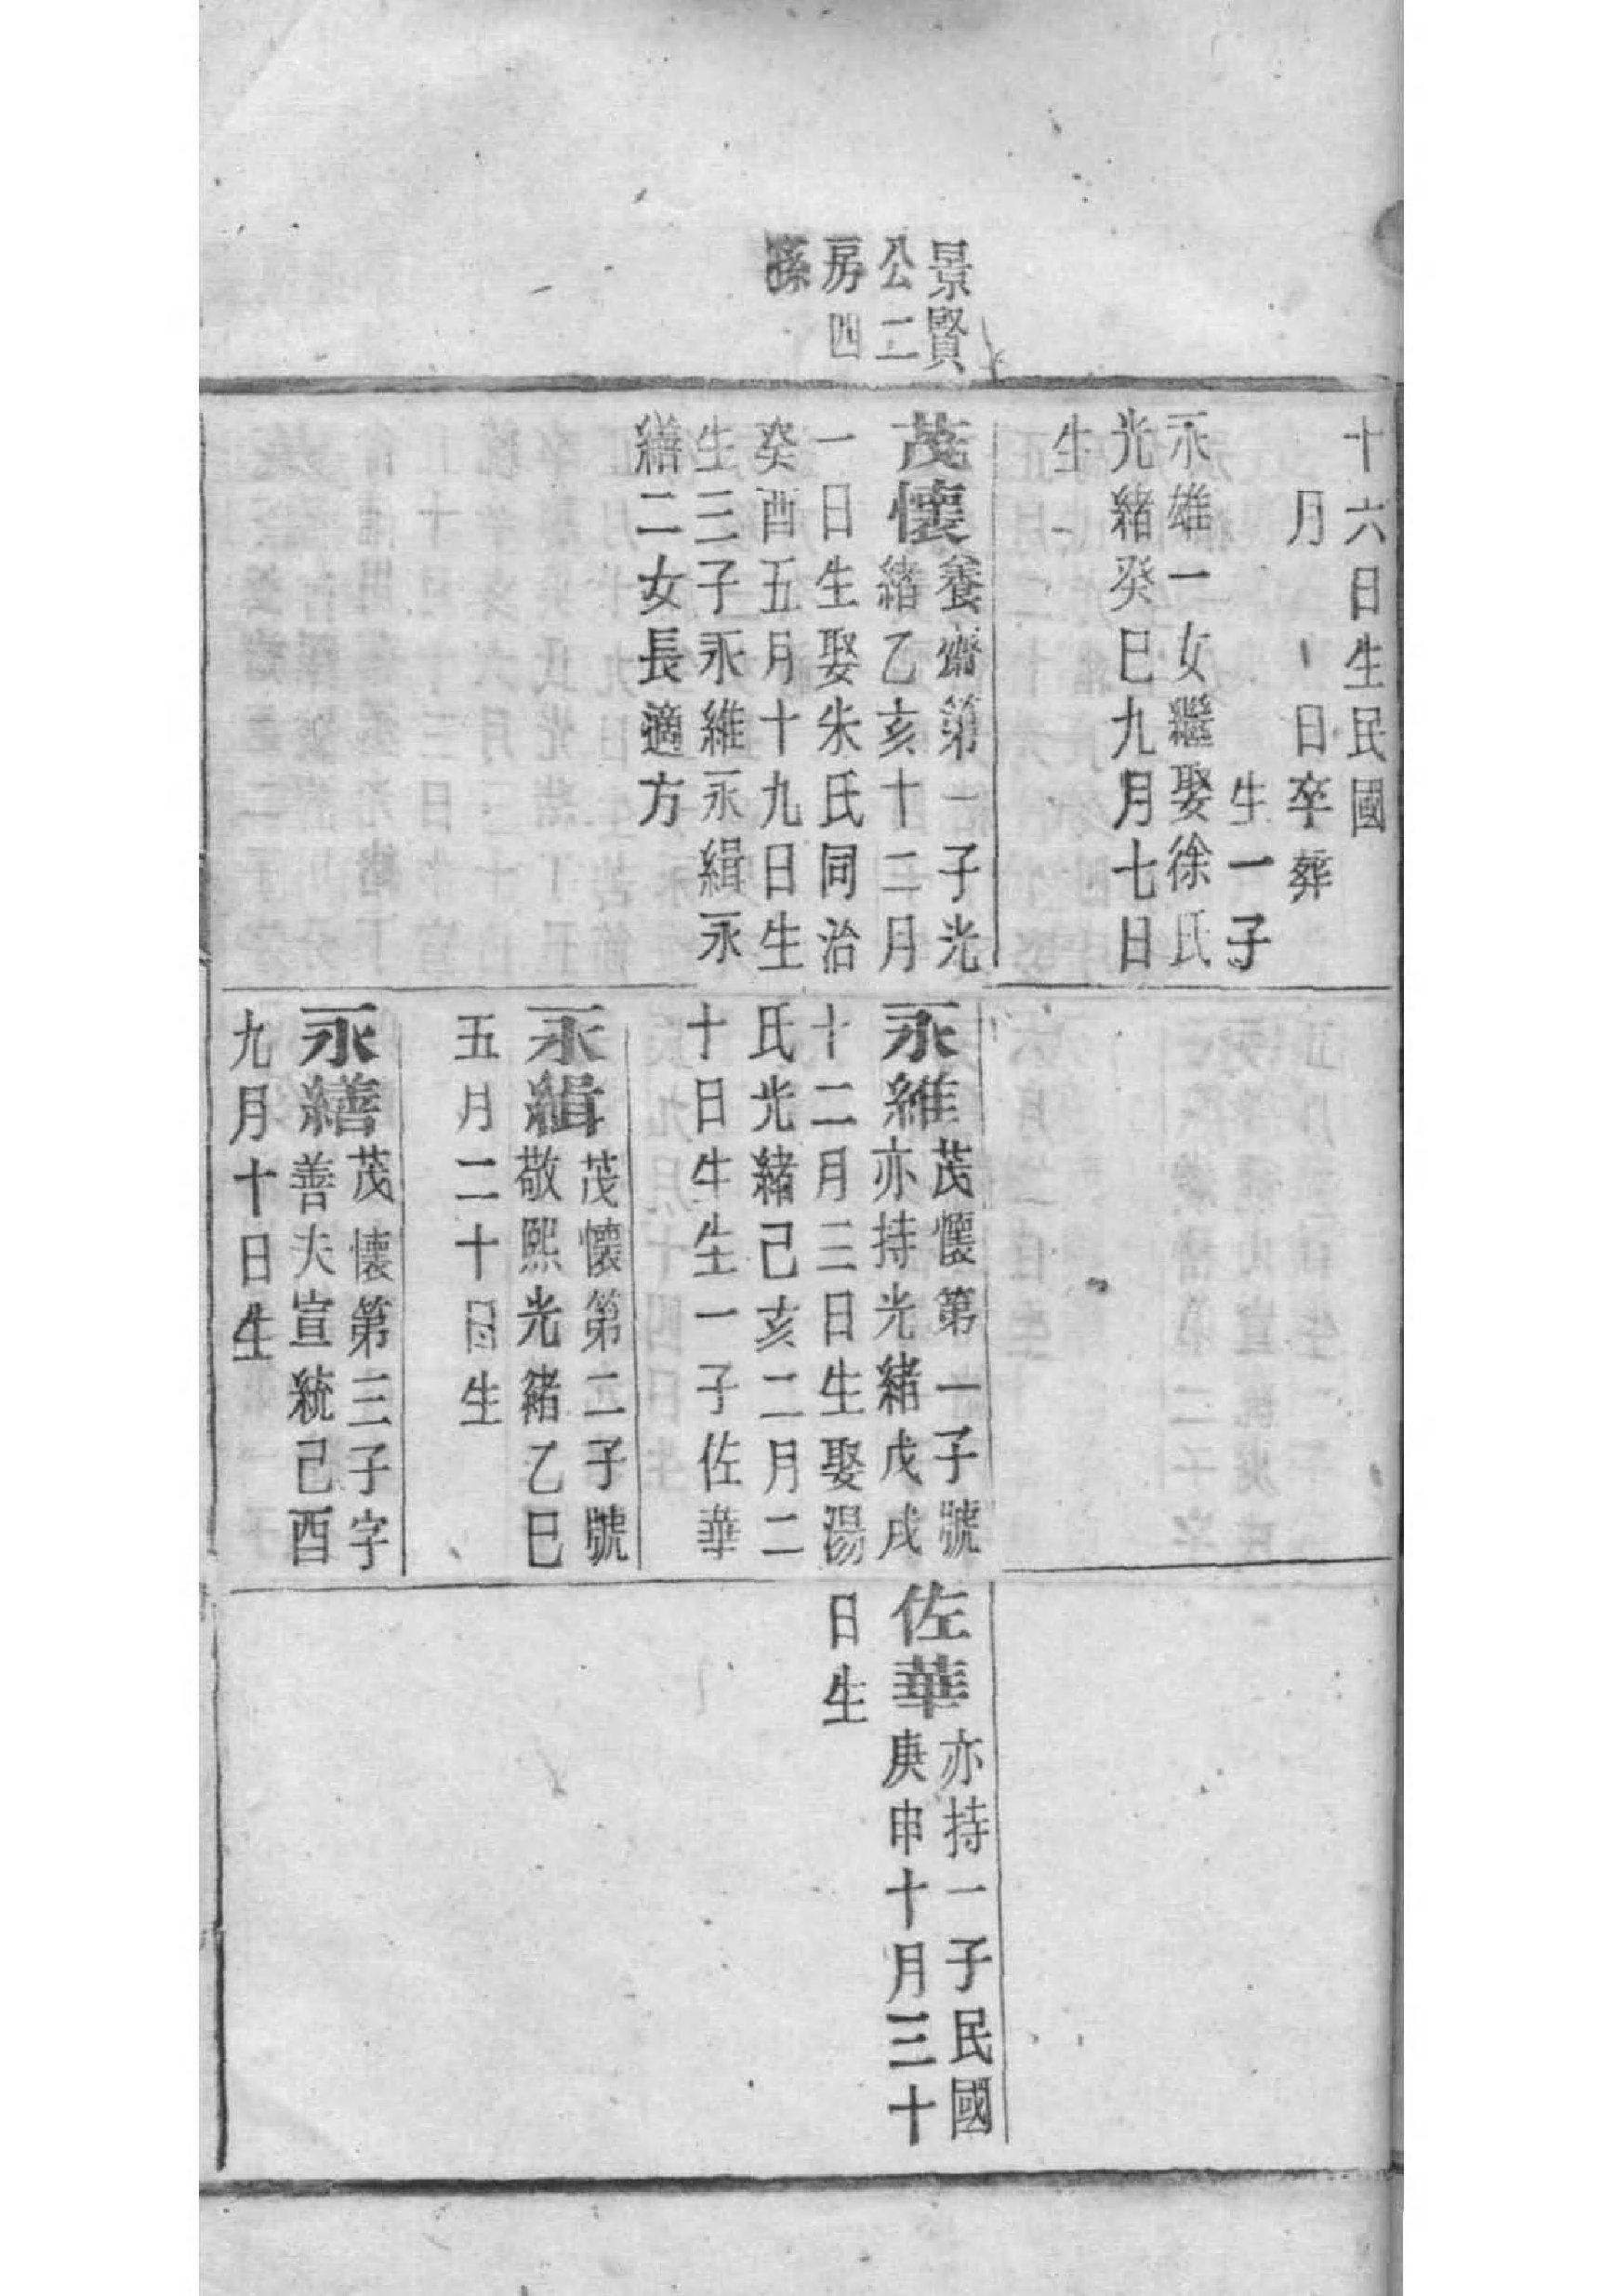 景賢
公二
房四
孫
十六日生民國
月　日卒葬
生一子
永雄一女繼娶徐氏
光緒癸巳九月七日
生
茂懷養齋第一子光
緒乙亥十二月
一日生娶朱氏同治
癸酉五月十九日生
生三子永維永緝永
繕二女長適方
永維茂懷第一子號
亦持光緒戊戌
十二月三日生娶湯
氏光緒己亥二月二
十日生生一子佐華
永緝茂懷第二子號
敬熙光緒乙巳
五月二十日生
永繕茂懷第三子字
善夫宣統己酉
九月十日生
佐華亦持一子民國
庚申十月三十
日生